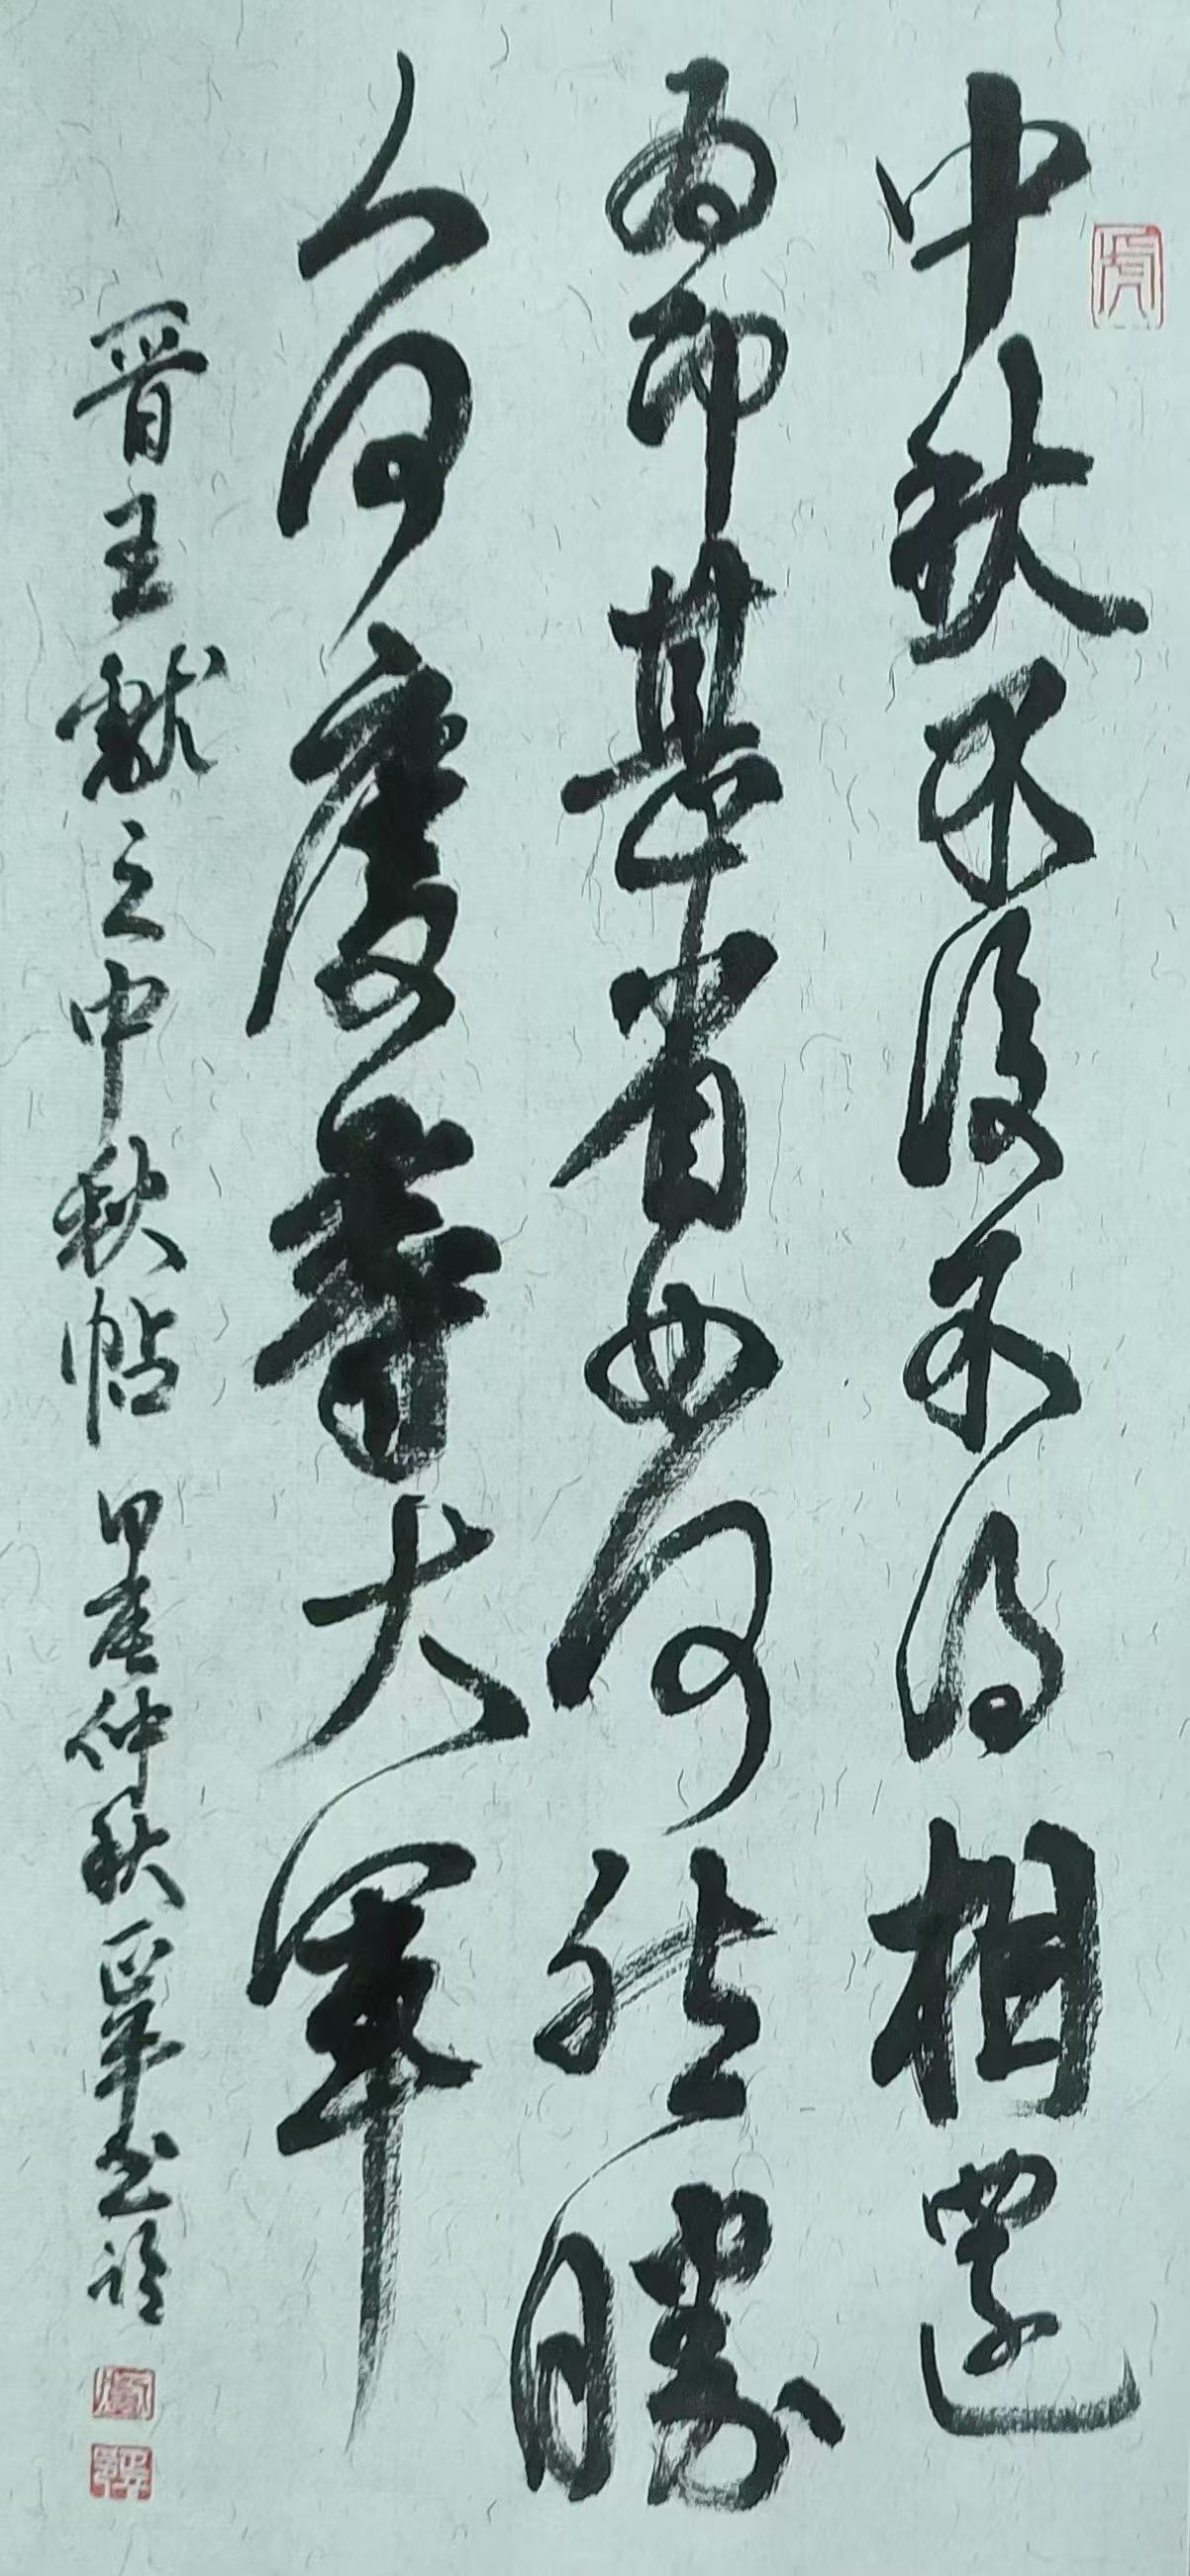 中秋不復不得相還
為即甚省如何然勝
人何慶等大軍
晋王獻之中秋帖 甲辰仲秋 书